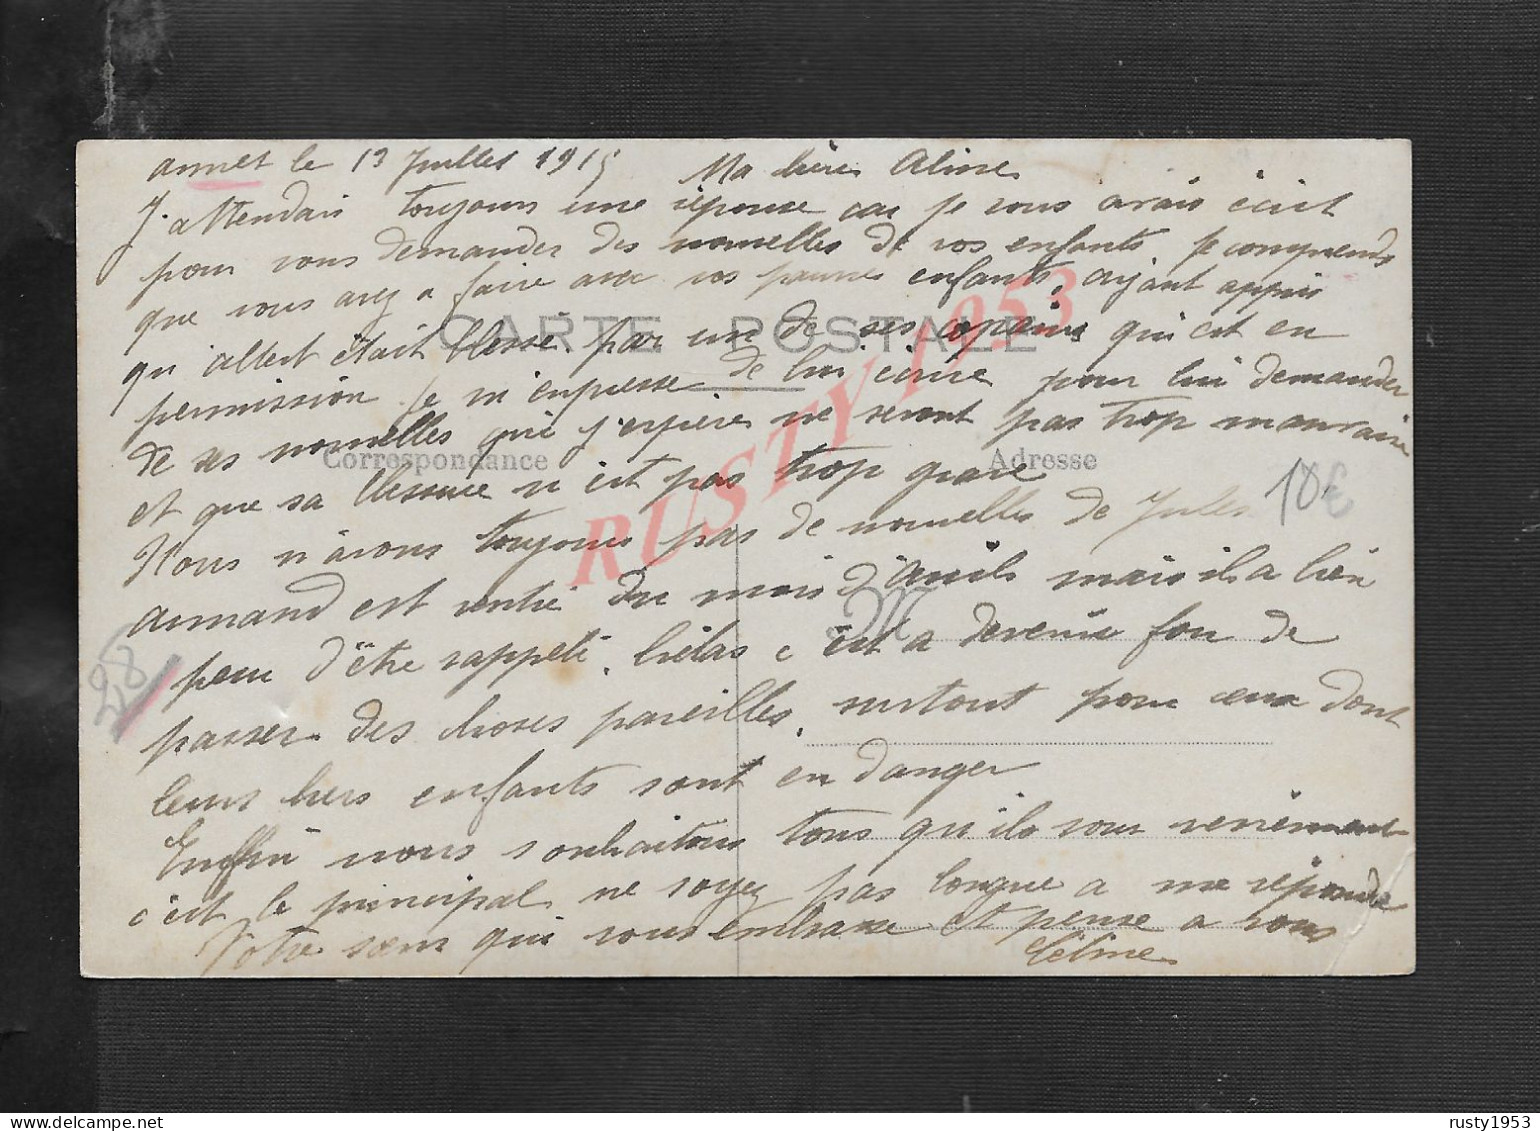 annet le 13 Juillet 1915 Ma chère Aline
J'attendais toujours une réponse car je vous avais écrit
pour vous demander des nouvelles de vos enfants, je comprends
que vous avez a faire avec vos pauvres enfants, ayant appris
CARTE POSTALE
qu'albert était blessé par un de ses copains qui est en
permission je m'empresse de lui écrire pour lui demander
de ses nouvelles que j'espère ne seront pas trop mauvaise
Correspondance Adresse
et que sa blessure n'est pas trop grave
18€
Nous n'avons toujours pas de nouvelles de Jules
armand est rentré du mois d'avril mais il a bien
peur d'être rappelé, hélas c'est a devenir fou de
28
passer des choses pareilles, surtout pour ceux dont
leurs chers enfants sont en danger
Enfin nous souhaitons tous qu'ils vous reviennent
c'est le principal ne soyez pas longue a me répondre
Votre sœur qui vous embrasse et pense a vous
Céline
RUSTY1953
rusty1953 delcampe.net